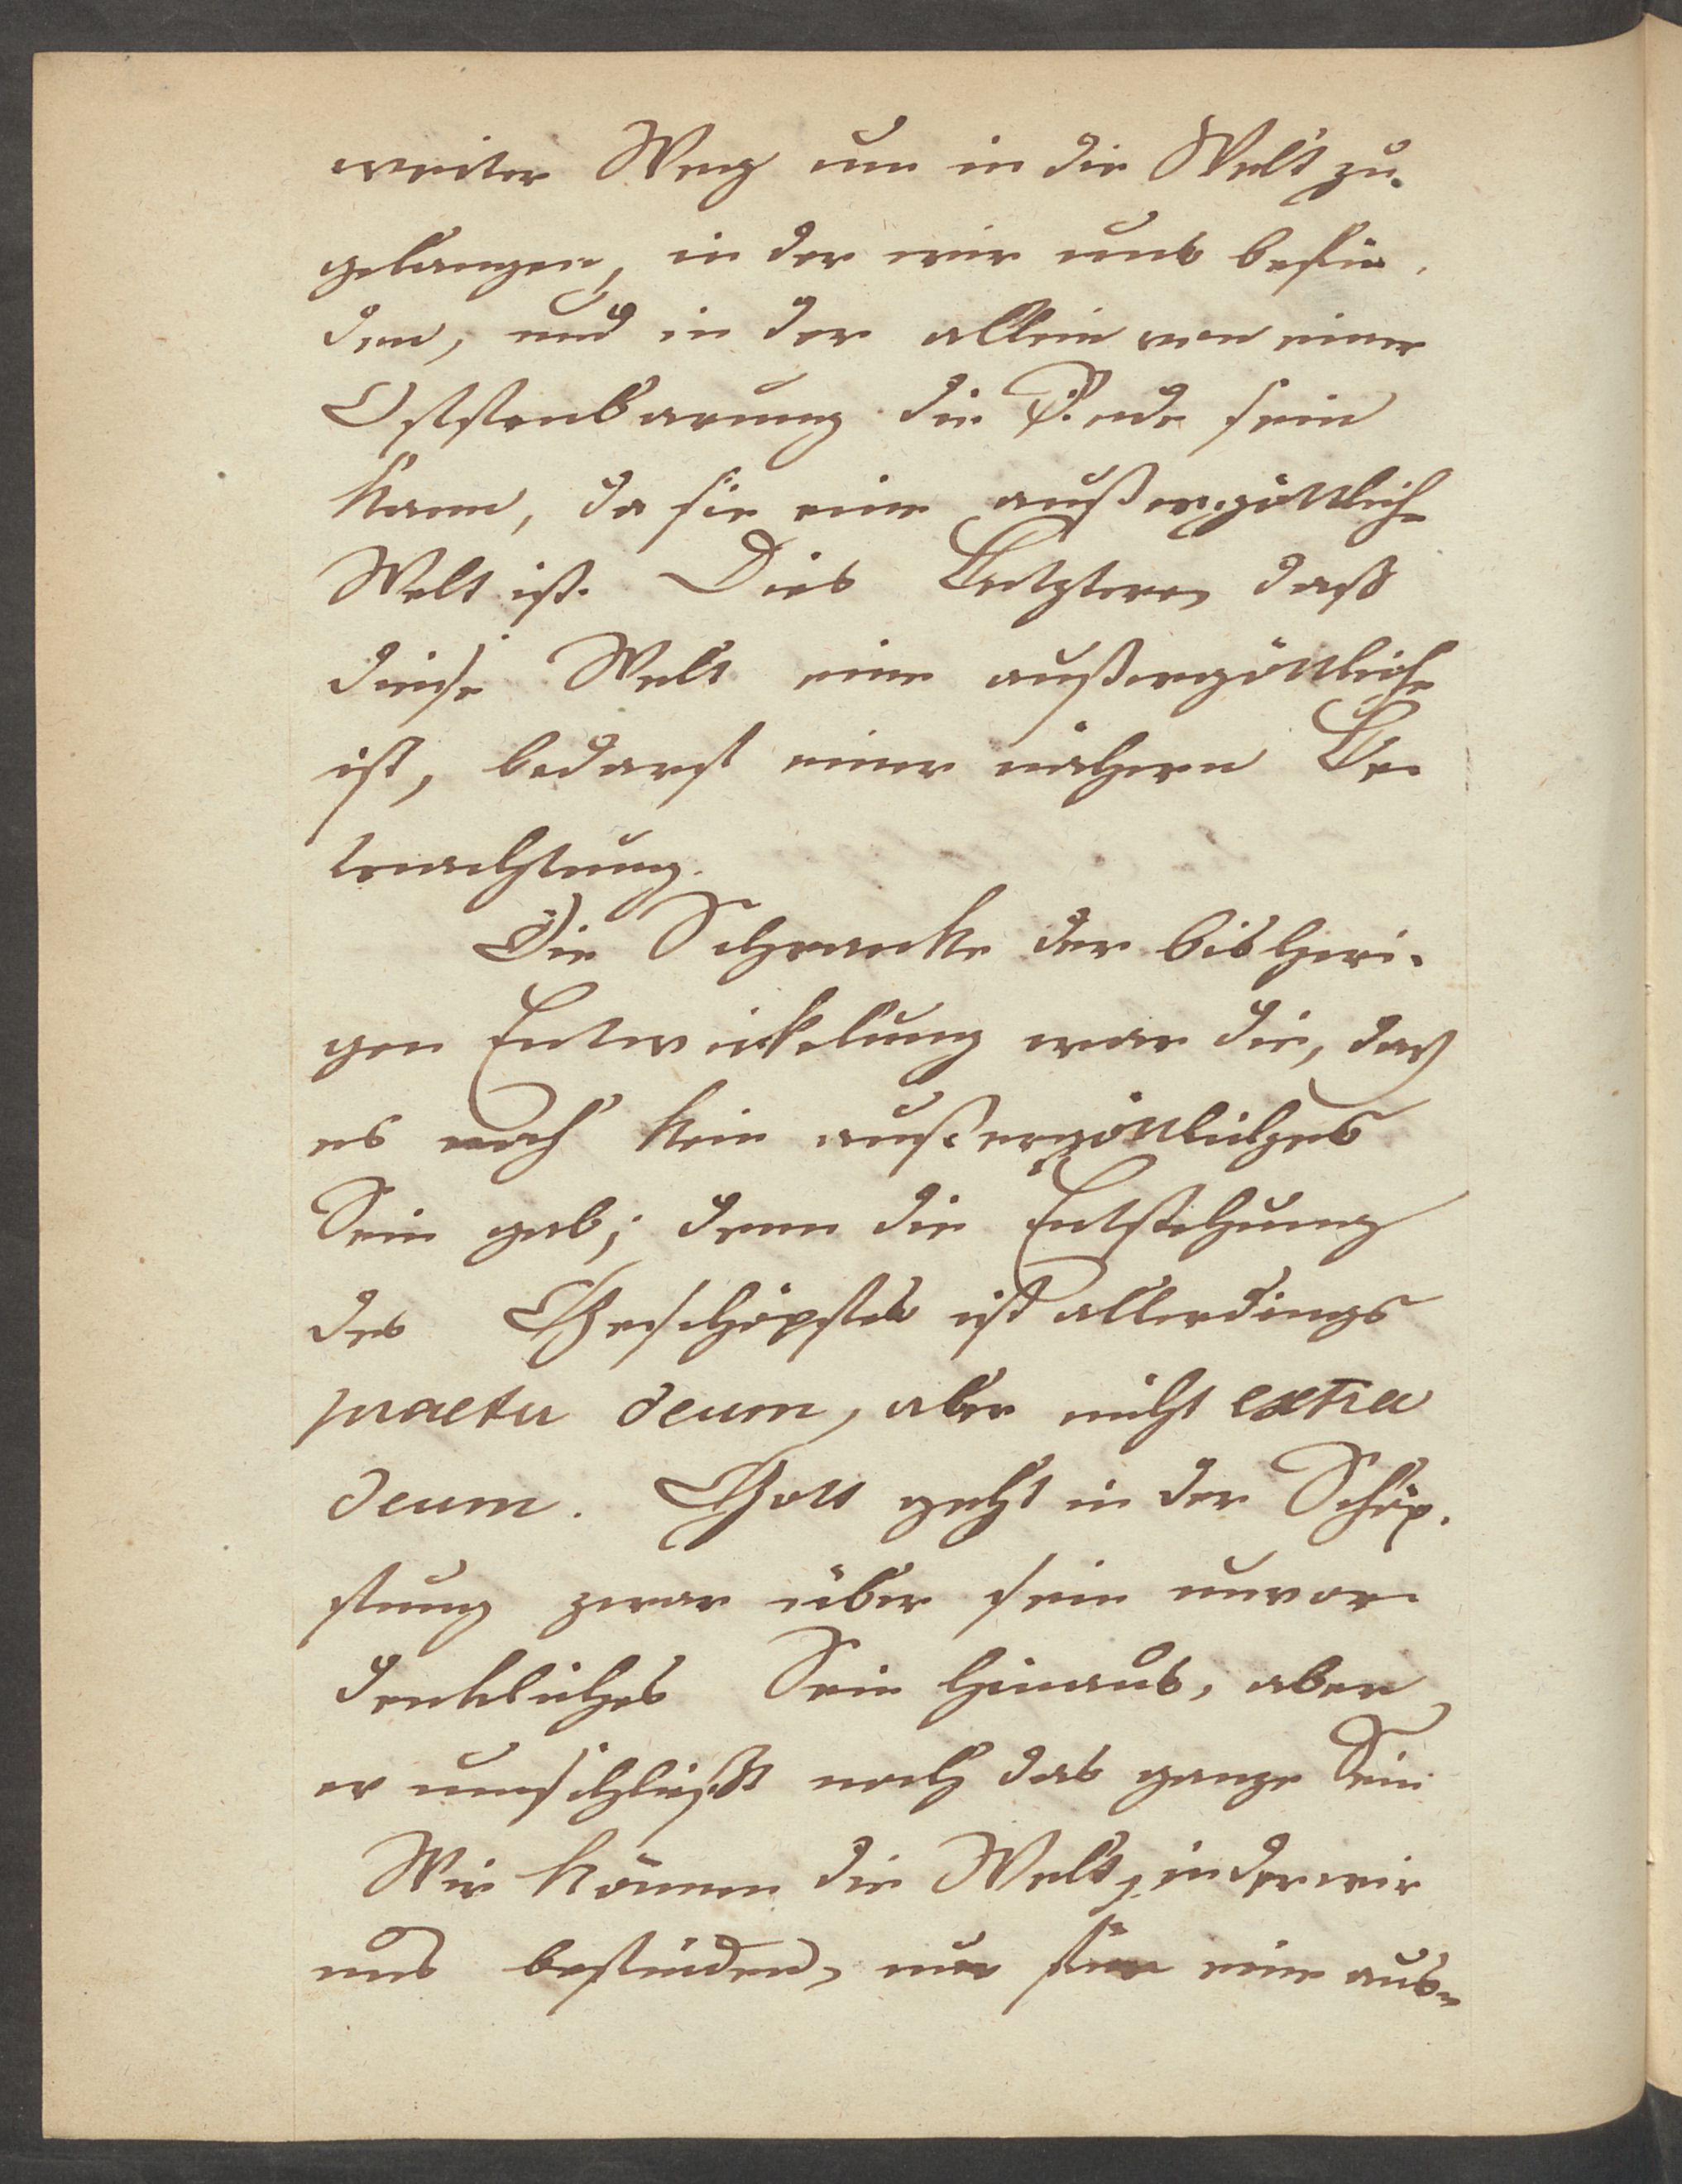 weiter Weg um in die Welt zu
gelangen, in der wir uns befin-
den, und in der allein von einer
Offenbarung die Rede sein
kann, da sie eine außergöttliche
Welt ist. Dies Letztere, daß
diese Welt eine außergöttliche
ist, bedarf einer nähern Be-
trachtung.
Die Schranke der bisheri-
gen Entwickelung war die, daß
es noch kein außergöttliches
Sein gab; denn die Entstehung
des Geschöpfes ist allerdings
praeter deum, aber nicht extra
deum. Gott geht in der Schöp-
fung zwar über sein unvor-
denkliches Sein hinaus, aber
er umschließt noch das ganze Sein
Wir können die Welt, in der wir
uns befinden, nur für eine aus-